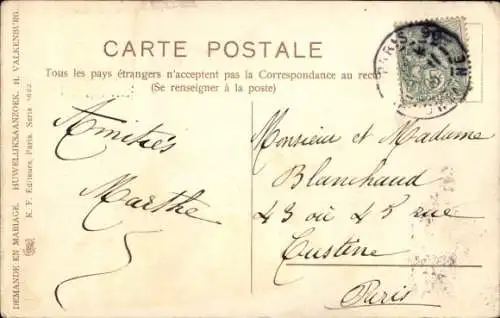 CARTE POSTALE
Tous les pays étrangers n'acceptent pas la Correspondance au recto
(Se renseigner à la poste)
DEMANDE EN MARIAGE. HUWELIJKSAANZOEK. H. VALKENBURG.
K. F. Editeurs, Paris. Serie
Amitiés
Marthe
Monsieur et Madame
Blanchaud
43 où 45 rue
Custine
Paris
PARIS